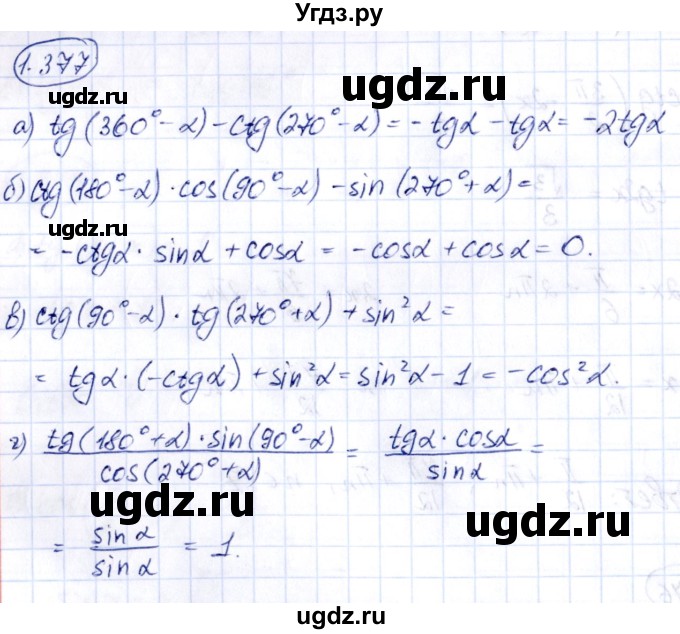 Угдз.ру
1.377
ugdz.ru ugdz.ru
а) tg(360°-α) - ctg(270°-α) = - tgα - tgα = -2tgα
б) ctg(180°-α)·cos(90°-α) - sin(270°+α)=
ugdz.ru ugdz.ru
= -ctgα · sinα + cosα = -cosα + cosα = 0.
в) ctg(90°-α)·tg(270°+α) + sin²α =
ugdz.ru ugdz.ru
= tgα·(-ctgα) + sin²α = sin²α - 1 = -cos²α.
г) tg(180°+α)·sin(90°-α) / cos(270°+α) = tgα·cosα / sinα =
ugdz.ru ugdz.ru
= sinα / sinα = 1.
ugdz.ru ugdz.ru
ugdz.ru